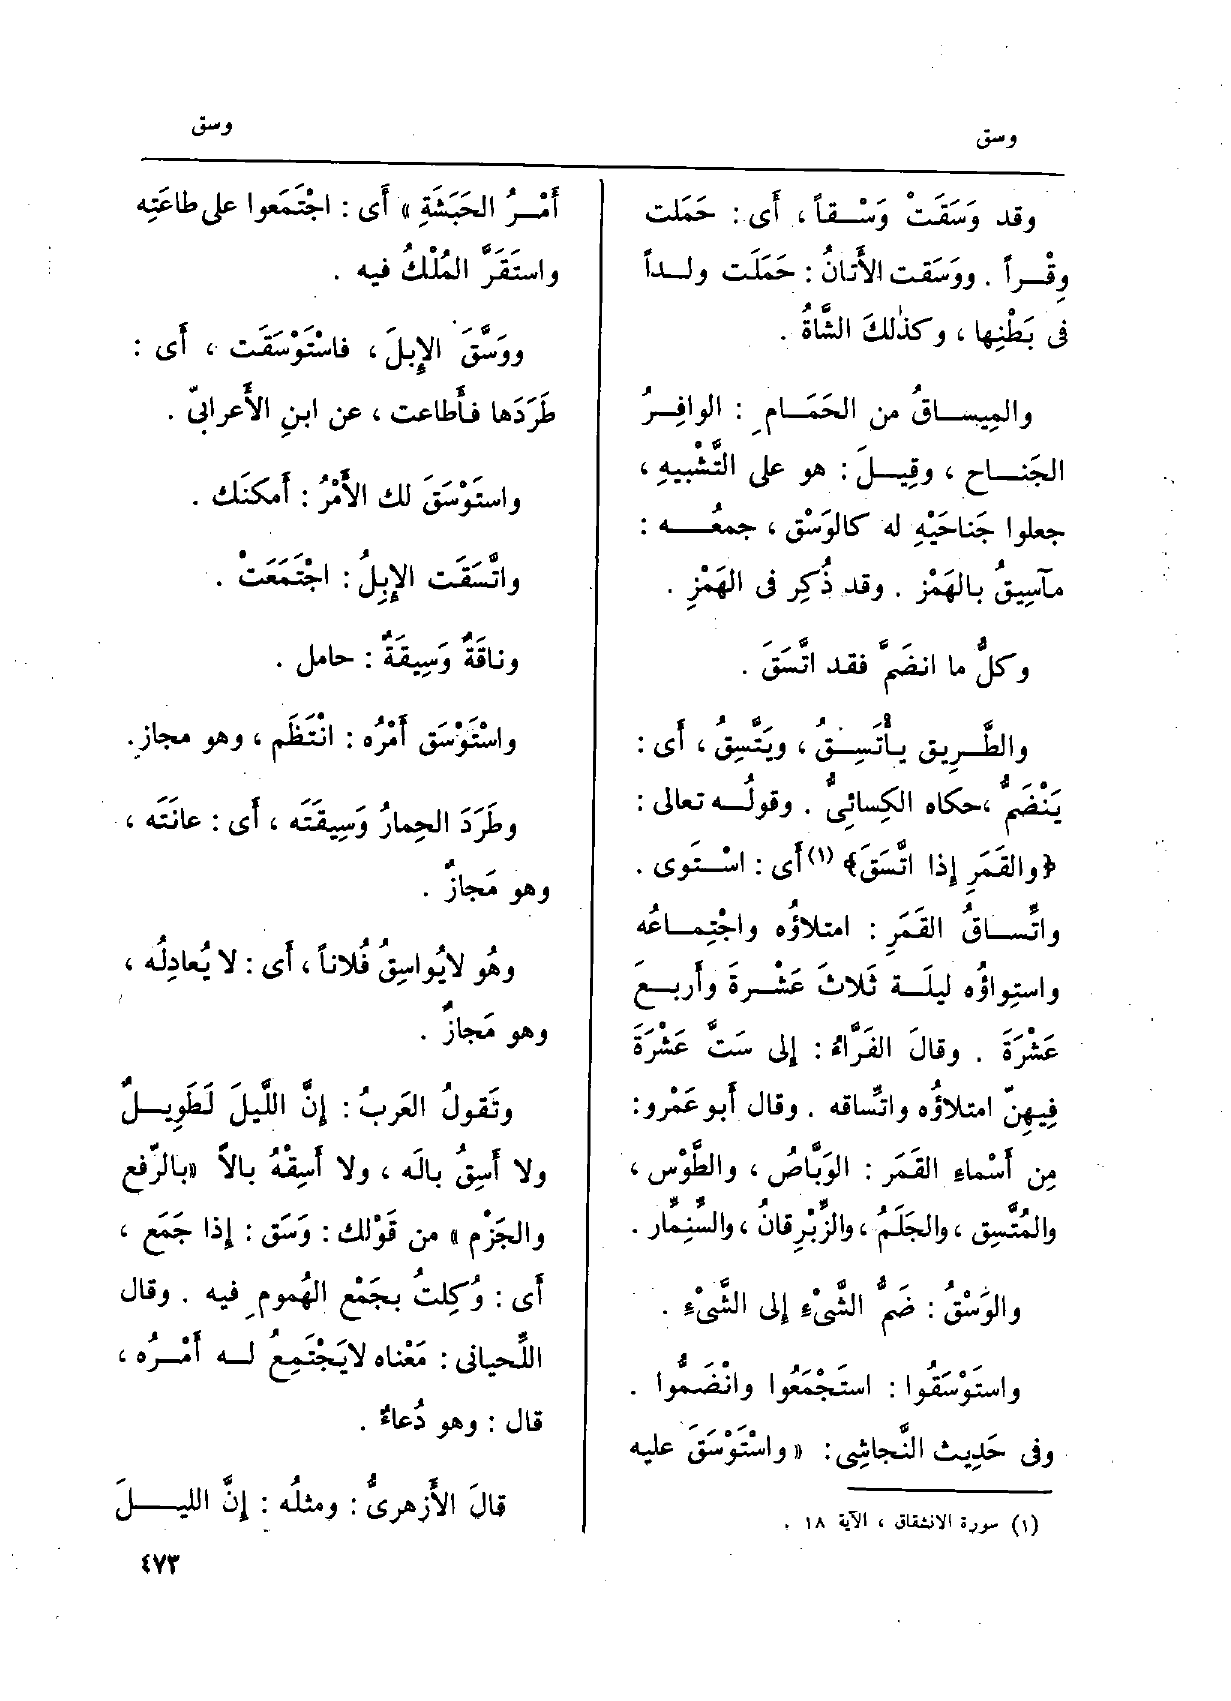 وسق
وسق
وقد وَسَقَتْ وَسْقاً، أَى : حَمَلت
وِقْراً . ووَسَقت الأَتانُ : حَمَلَت ولداً
فى بَطْنِها ، وكذٰلكَ الشّاةُ .
والمِيساقُ من الحَمَامِ : الوافِرُ
الجَناح ، وقِيلَ : هو على التَّشْبِيهِ ،
جعلوا جَناحَيْهِ له كالوَسْق ، جمعُه :
مآسِيقُ بالهَمْز . وقد ذُكِر فى الهَمْزِ .
وكلُّ ما انضَمَّ فقد اتَّسَقَ .
والطَّرِيق يأْتَسِقُ ، ويَتَّسِقُ ، أَى :
يَنْضَمُّ ، حكاه الكِسائِىُّ . وقولُه تعالى :
﴿والقَمَرِ إِذا اتَّسَقَ﴾ (١) أَى : اسْتوى .
واتِّساقُ القَمَرِ : امتلاؤُه واجْتِماعُه
واستِواؤُه ليلَة ثَلاثَ عَشْرةَ وأَربعَ
عَشْرَةَ . وقالَ الفَرَّاءُ : إِلى سَتَّ عَشْرَةَ
فِيهِنّ امتلاؤُه واتِّساقه . وقال أَبو عَمْرو :
مِن أَسْماءِ القَمَر : الوَبَّاصُ ، والطَّوْس ،
والمُتَّسِق ، والجَلَمُ ، والزِّبْرِقانُ ، والسِّنِمَّار .
والوَسْقُ : ضَمُّ الشَّىْءِ إِلى الشَّىْءِ .
واستَوْسَقُوا : استَجْمَعُوا وانْضَمُّوا .
وفى حَدِيث النَّجاشِى : « واسْتَوْسَقَ عليه
(١) سورة الانشقاق ، الآية ١٨ .
أَمْرُ الحَبَشَةِ » أَى : اجْتَمَعوا على طاعَتِه
واستَقَرَّ المُلْكُ فيه .
ووَسَّقَ الإِبلَ ، فاسْتَوْسَقَت ، أَى :
طَرَدَها فأَطاعت ، عن ابنِ الأَعرابىّ .
واستَوْسَقَ لك الأَمْرُ : أَمكنَك .
واتَّسَقَت الإِبِلُ : اجْتَمَعَتْ .
وناقَةٌ وَسِيقَةٌ : حامل .
واسْتَوْسَق أَمْرُه : انْتَظَم ، وهو مجاز .
وطَرَدَ الحِمارُ وَسِيقَتَه ، أَى : عانَتَه ،
وهو مَجازٌ .
وهُو لايُواسِقُ فُلاناً ، أَى : لا يُعادِلُه ،
وهو مَجازٌ .
وتَقولُ العَربُ : إِنَّ اللَّيلَ لَطَوِيلٌ
ولا أَسِقُ بالَه ، ولا أَسِقْهُ بالاً «بالرّفع
والجَزْم » من قَوْلك : وَسَق : إِذا جَمَع ،
أَى : وُكِلتُ بجَمْع الهُمومِ فيه . وقال
اللِّحيانى : مَعْناه لايَجْتَمِعُ له أَمْرُه ،
قال : وهو دُعاءٌ .
قالَ الأَزهرىُّ : ومثلُه : إِنَّ الليلَ
٤٧٣